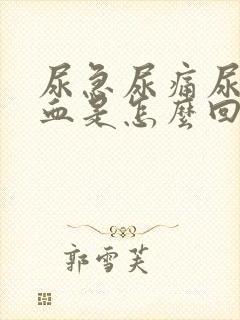 尿急尿痛尿
血是怎麼回
郭雪芙